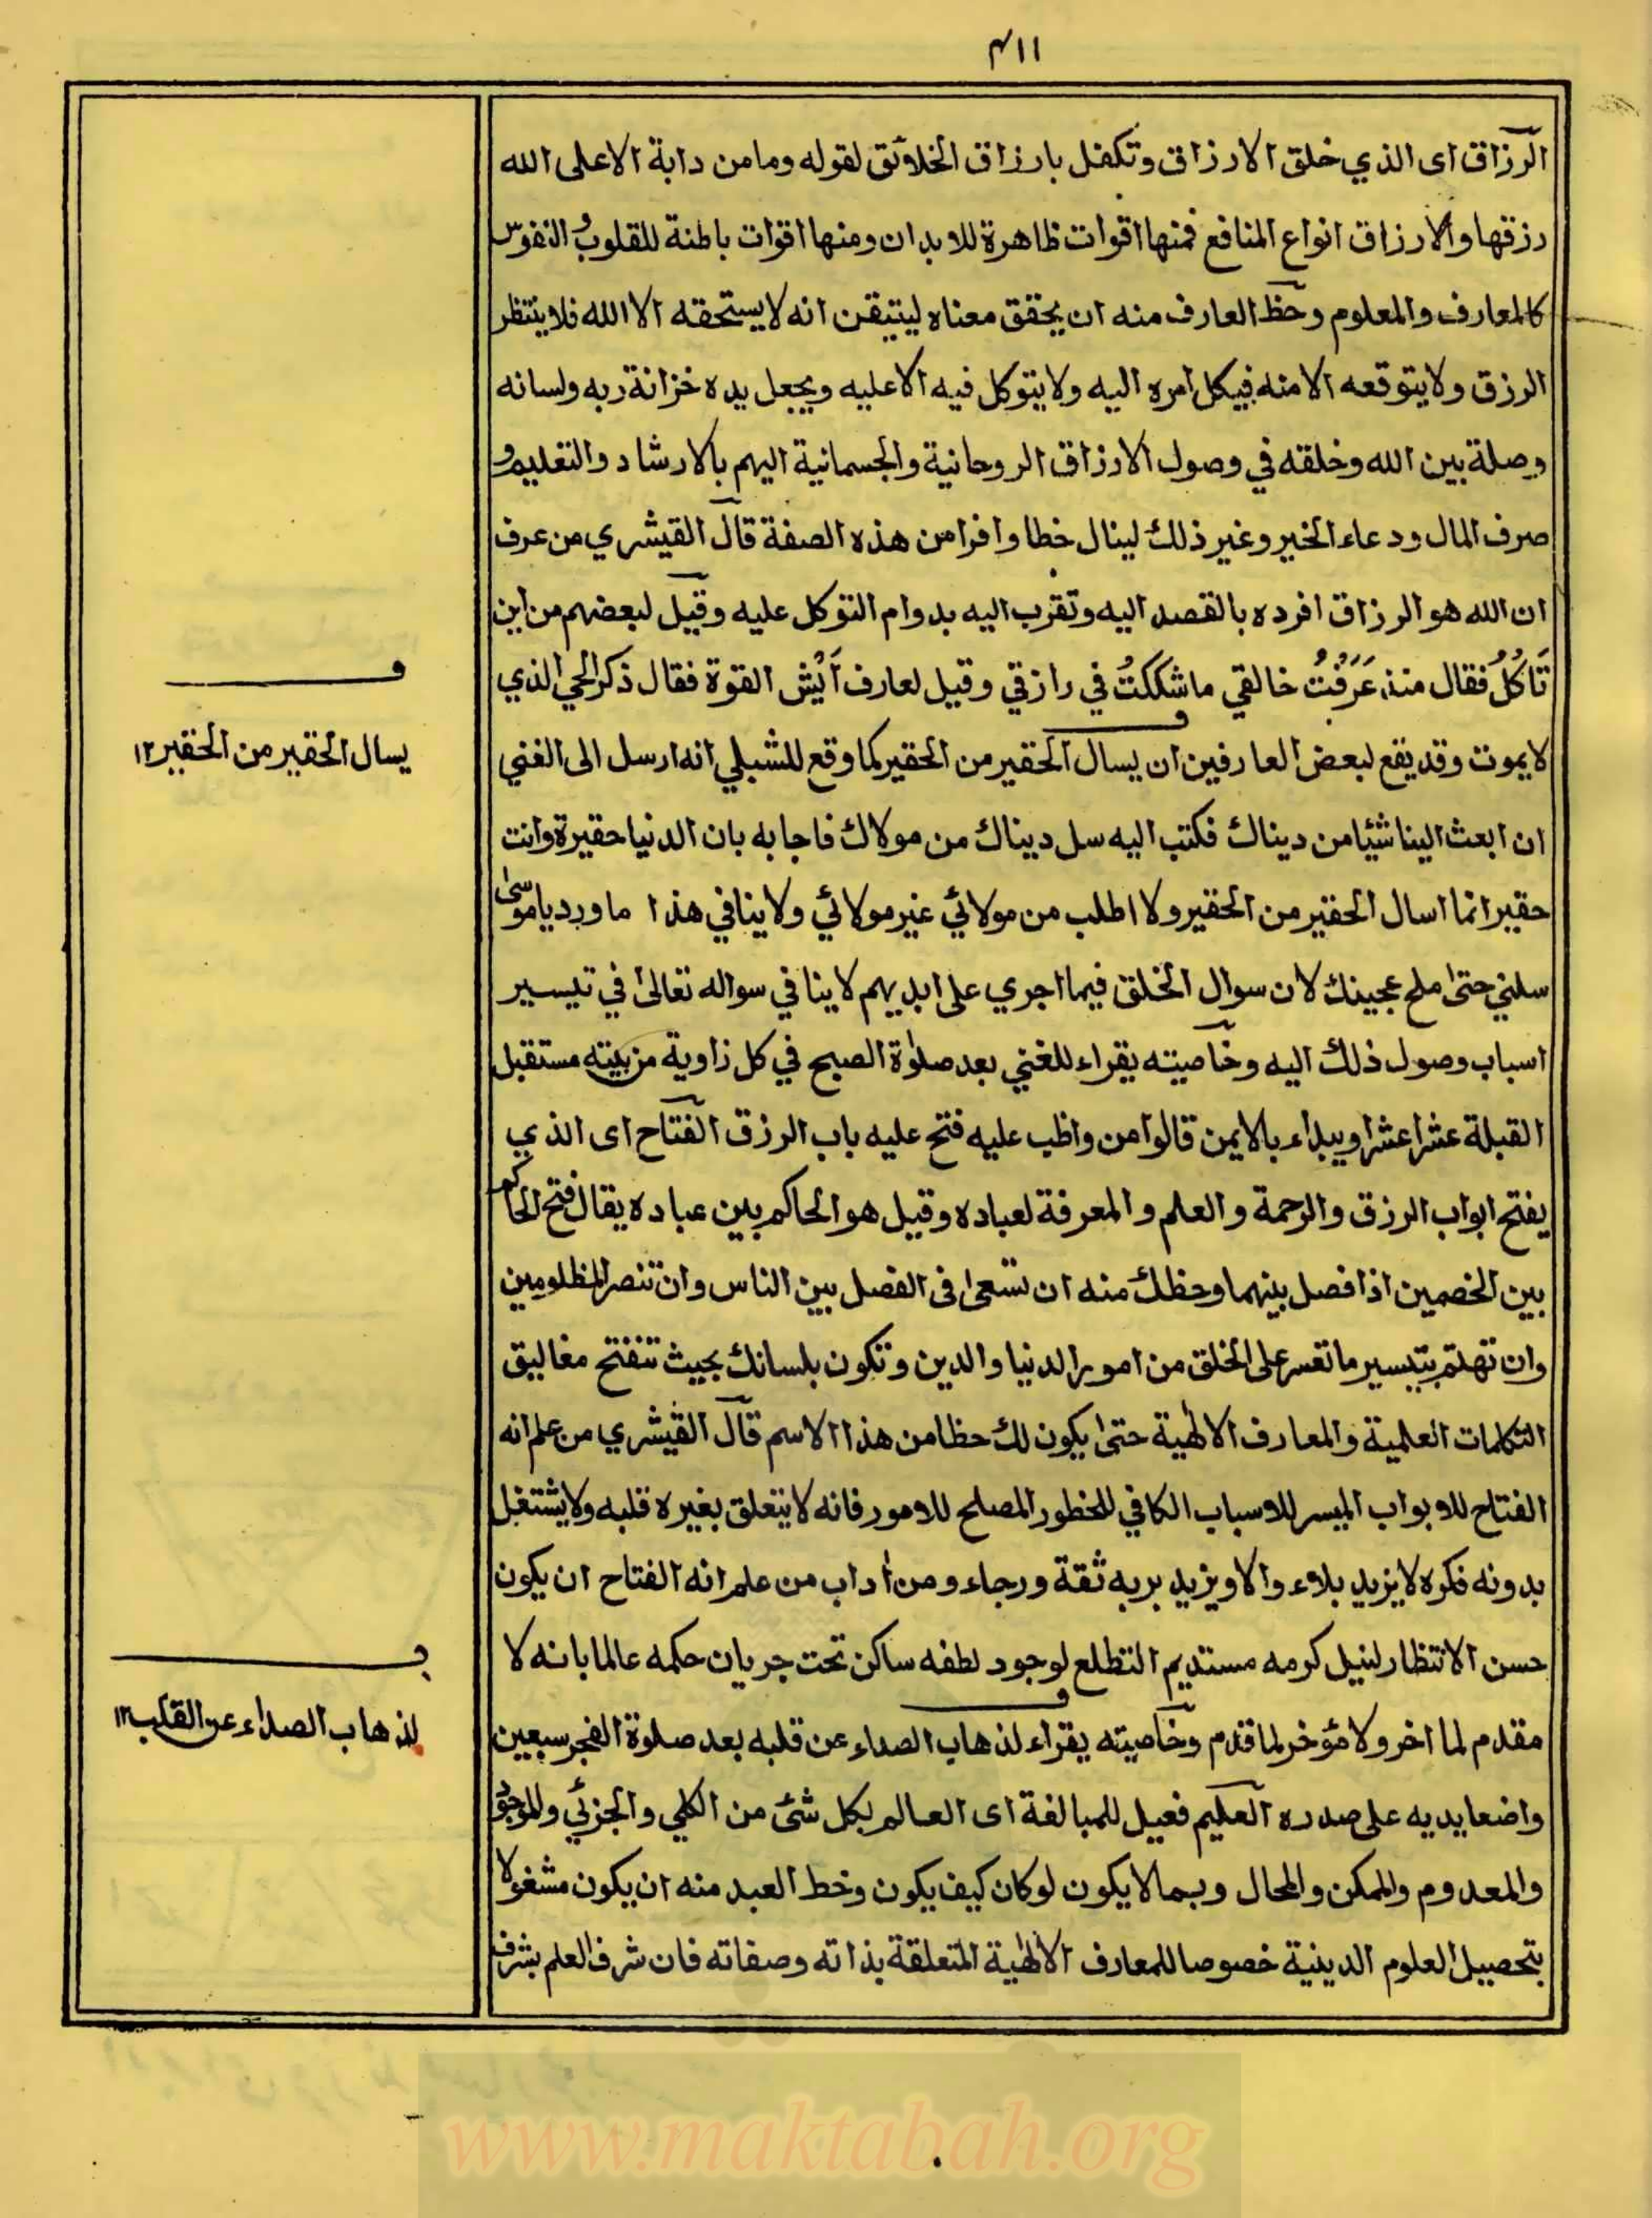 ٤١١
الرزاق اى الذي خلق الارزاق وتكفل بارزاق الخلائق لقوله وما من دابة الا على الله
رزقها والارزاق انواع المنافع فمنها اقوات ظاهرة للابدان ومنها اقوات باطنة للقلوب والنفوس
كالمعارف والمعلوم وحظ العارف منه ان يحقق معناه ليتيقن انه لا يستحقه الا الله فلا ينتظر
الرزق ولا يتوقعه الا منه فيكل امره اليه ولا يتوكل فيه الا عليه ويجعل يده خزانة ربه ولسانه
وصلة بين الله وخلقه في وصول الارزاق الروحانية والجسمانية اليهم بالارشاد والتعليم و
صرف المال ودعاء الخير وغير ذلك لينال خطا وافرا من هذه الصفة قال القيشري من عرف
ان الله هو الرزاق افرده بالقصد اليه وتقرب اليه بدوام التوكل عليه وقيل لبعضهم من اين
تَاكُلُ فقال منذ عَرَفتُ خالقي ما شككتُ في رازقي وقيل لعارف اَيْش القوة فقال ذكر الحي الذي
لا يموت وقد يقع لبعض العارفين ان يسال الحقير من الحقير كما وقع للشبلي انه ارسل الى الغني
ان ابعث الينا شيئا من ديناك فكتب اليه سل ديناك من مولاك فاجابه بان الدنيا حقيرة وانت
حقير انما اسال الحقير من الحقير ولا اطلب من مولائي غير مولائي ولا ينافي هذا ما ورد يا موسى
سلني حتى ملح عجينك لان سوال الخلق فيما اجري على ايديهم لا ينافي سواله تعالى في تيسير
اسباب وصول ذلك اليه وخاصيته يقراء للغني بعد صلوٰة الصبح في كل زاوية من بيته مستقبل
القبلة عشرا عشرا ويبداء بالايمن قالوا من واظب عليه فتح عليه باب الرزق الفتاح اى الذي
يفتح ابواب الرزق والرحمة والعلم والمعرفة لعباده وقيل هو الحاكم بين عباده يقال فتح الحاكم
بين الخصمين اذا فصل بينهما وحظك منه ان تسعى فى الفصل بين الناس وان تنصر المظلومين
وان تهتم بتيسير ما تعسر على الخلق من امور الدنيا والدين وتكون بلسانك بحيث تنفتح مغاليق
التكلمات العلمية والمعارف الالٰهية حتى يكون لك حظا من هذا الاسم قال القيشري من علم انه
الفتاح للابواب الميسر للاسباب الكافي للحظور المصلح للامور فانه لا يتعلق بغيره قلبه ولا يشتغل
بدونه فكره لا يزيد بلاء والا ويزيد بربه ثقة ورجاء ومن اٰداب من علم انه الفتاح ان يكون
حسن الانتظار لنيل كرمه مستديم التطلع لوجود لطفه ساكن تحت جريان حكمه عالما بانه لا
مقدم لما اخر ولا مؤخر لما قدم وخاصيته يقراء لذهاب الصداء عن قلبه بعد صلوة الفجر سبعين
واضعا يديه على صدره العليم فعيل للمبالغة اى العالم بكل شئ من الكلي والجزئي والموجود
والمعدوم والممكن والمحال وبما لا يكون لو كان كيف يكون وخط العبد منه ان يكون مشغولا
بتحصيل العلوم الدينية خصوصا للمعارف الالٰهية المتعلقة بذاته وصفاته فان شرف العلم بشرف
ف
يسال الحقير من الحقير ١٢
ف
لذهاب الصداء عن القلب ١٢
www.maktabah.org